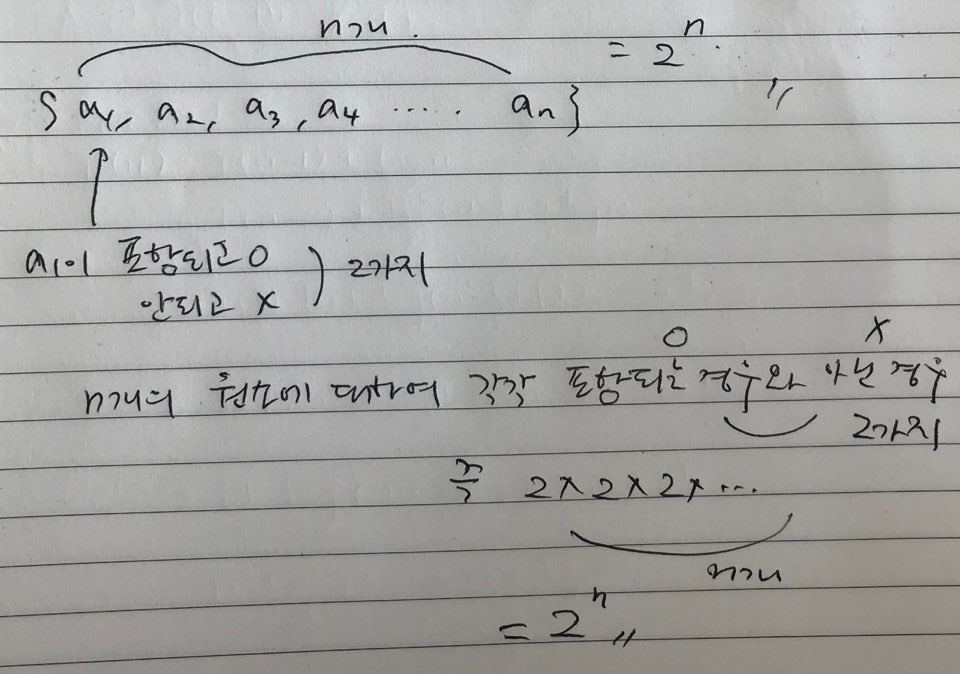 n개
= 2ⁿ
{ a₁, a₂, a₃, a₄ ..... aₙ }
a₁이 포함되고 O
안되고 X ) 2가지
O X
n개의 원소에 대하여 각각 포함되는 경우와 아닌 경우
2가지
즉 2×2×2×...
n개
= 2ⁿ